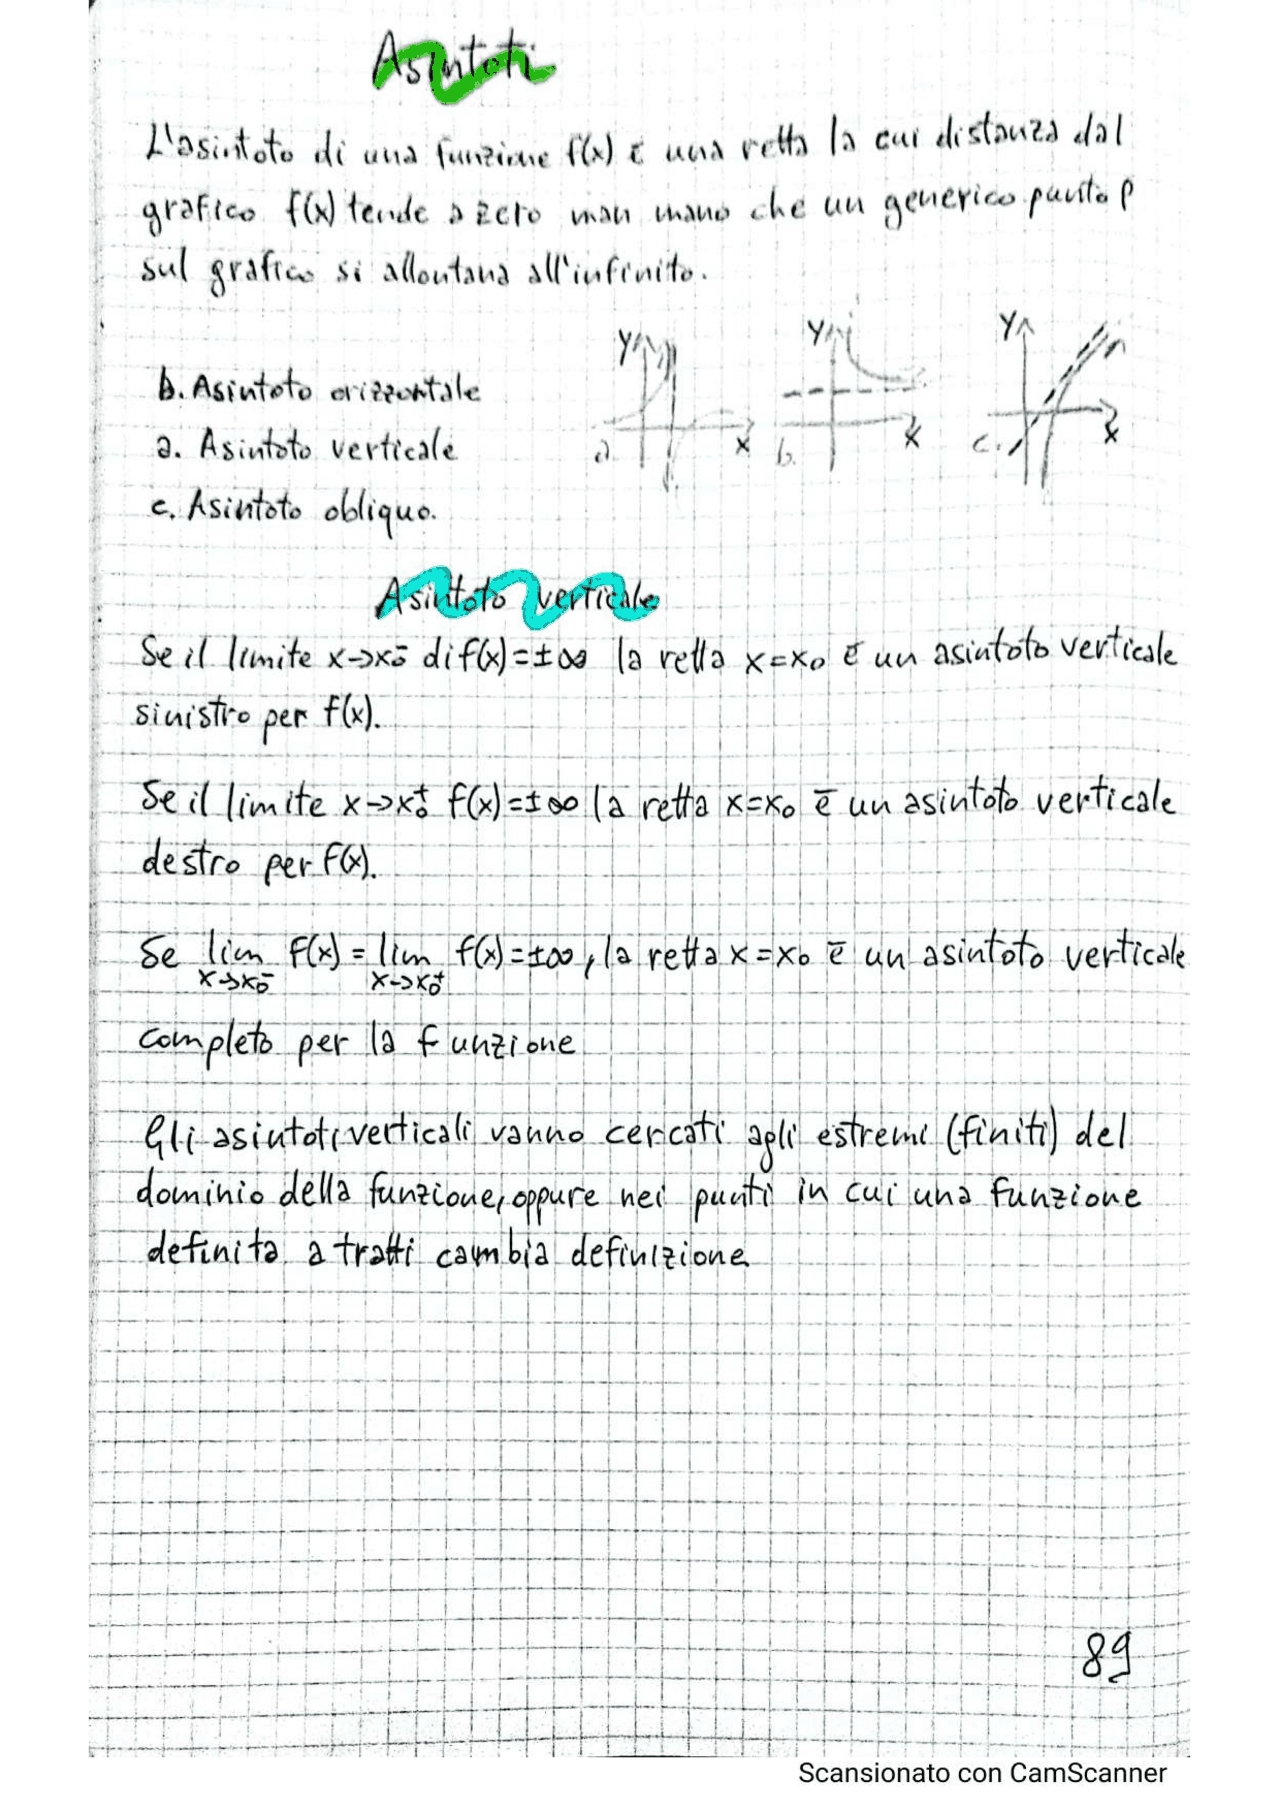 Asintoti
L'asintoto di una funzione f(x) ē una retta la cui distanza dal
grafico f(x) tende a zero man mano che un generico punto P
sul grafico si allontana all'infinito.
b. Asintoto orizzontale
a. Asintoto verticale
c. Asintoto obliquo.
Y X a.
Y X b.
Y X c.
Asintoto verticale
Se il limite x→x₀⁻ di f(x)=±∞ la retta x=x₀ ē un asintoto verticale
sinistro per f(x).
Se il limite x→x₀⁺ f(x)=±∞ la retta x=x₀ ē un asintoto verticale
destro per f(x).
Se lim f(x) = lim f(x)=±∞, la retta x=x₀ ē un asintoto verticale
x→x₀⁻ x→x₀⁺
completo per la funzione
Gli asintoti verticali vanno cercati agli estremi (finiti) del
dominio della funzione, oppure nei punti in cui una funzione
definita a tratti cambia definizione
89
Scansionato con CamScanner